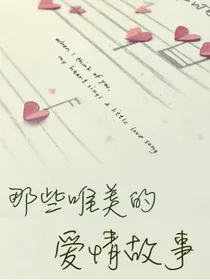 when I think of you,
my heart sings a little love song
那些唯美的
爱情故事